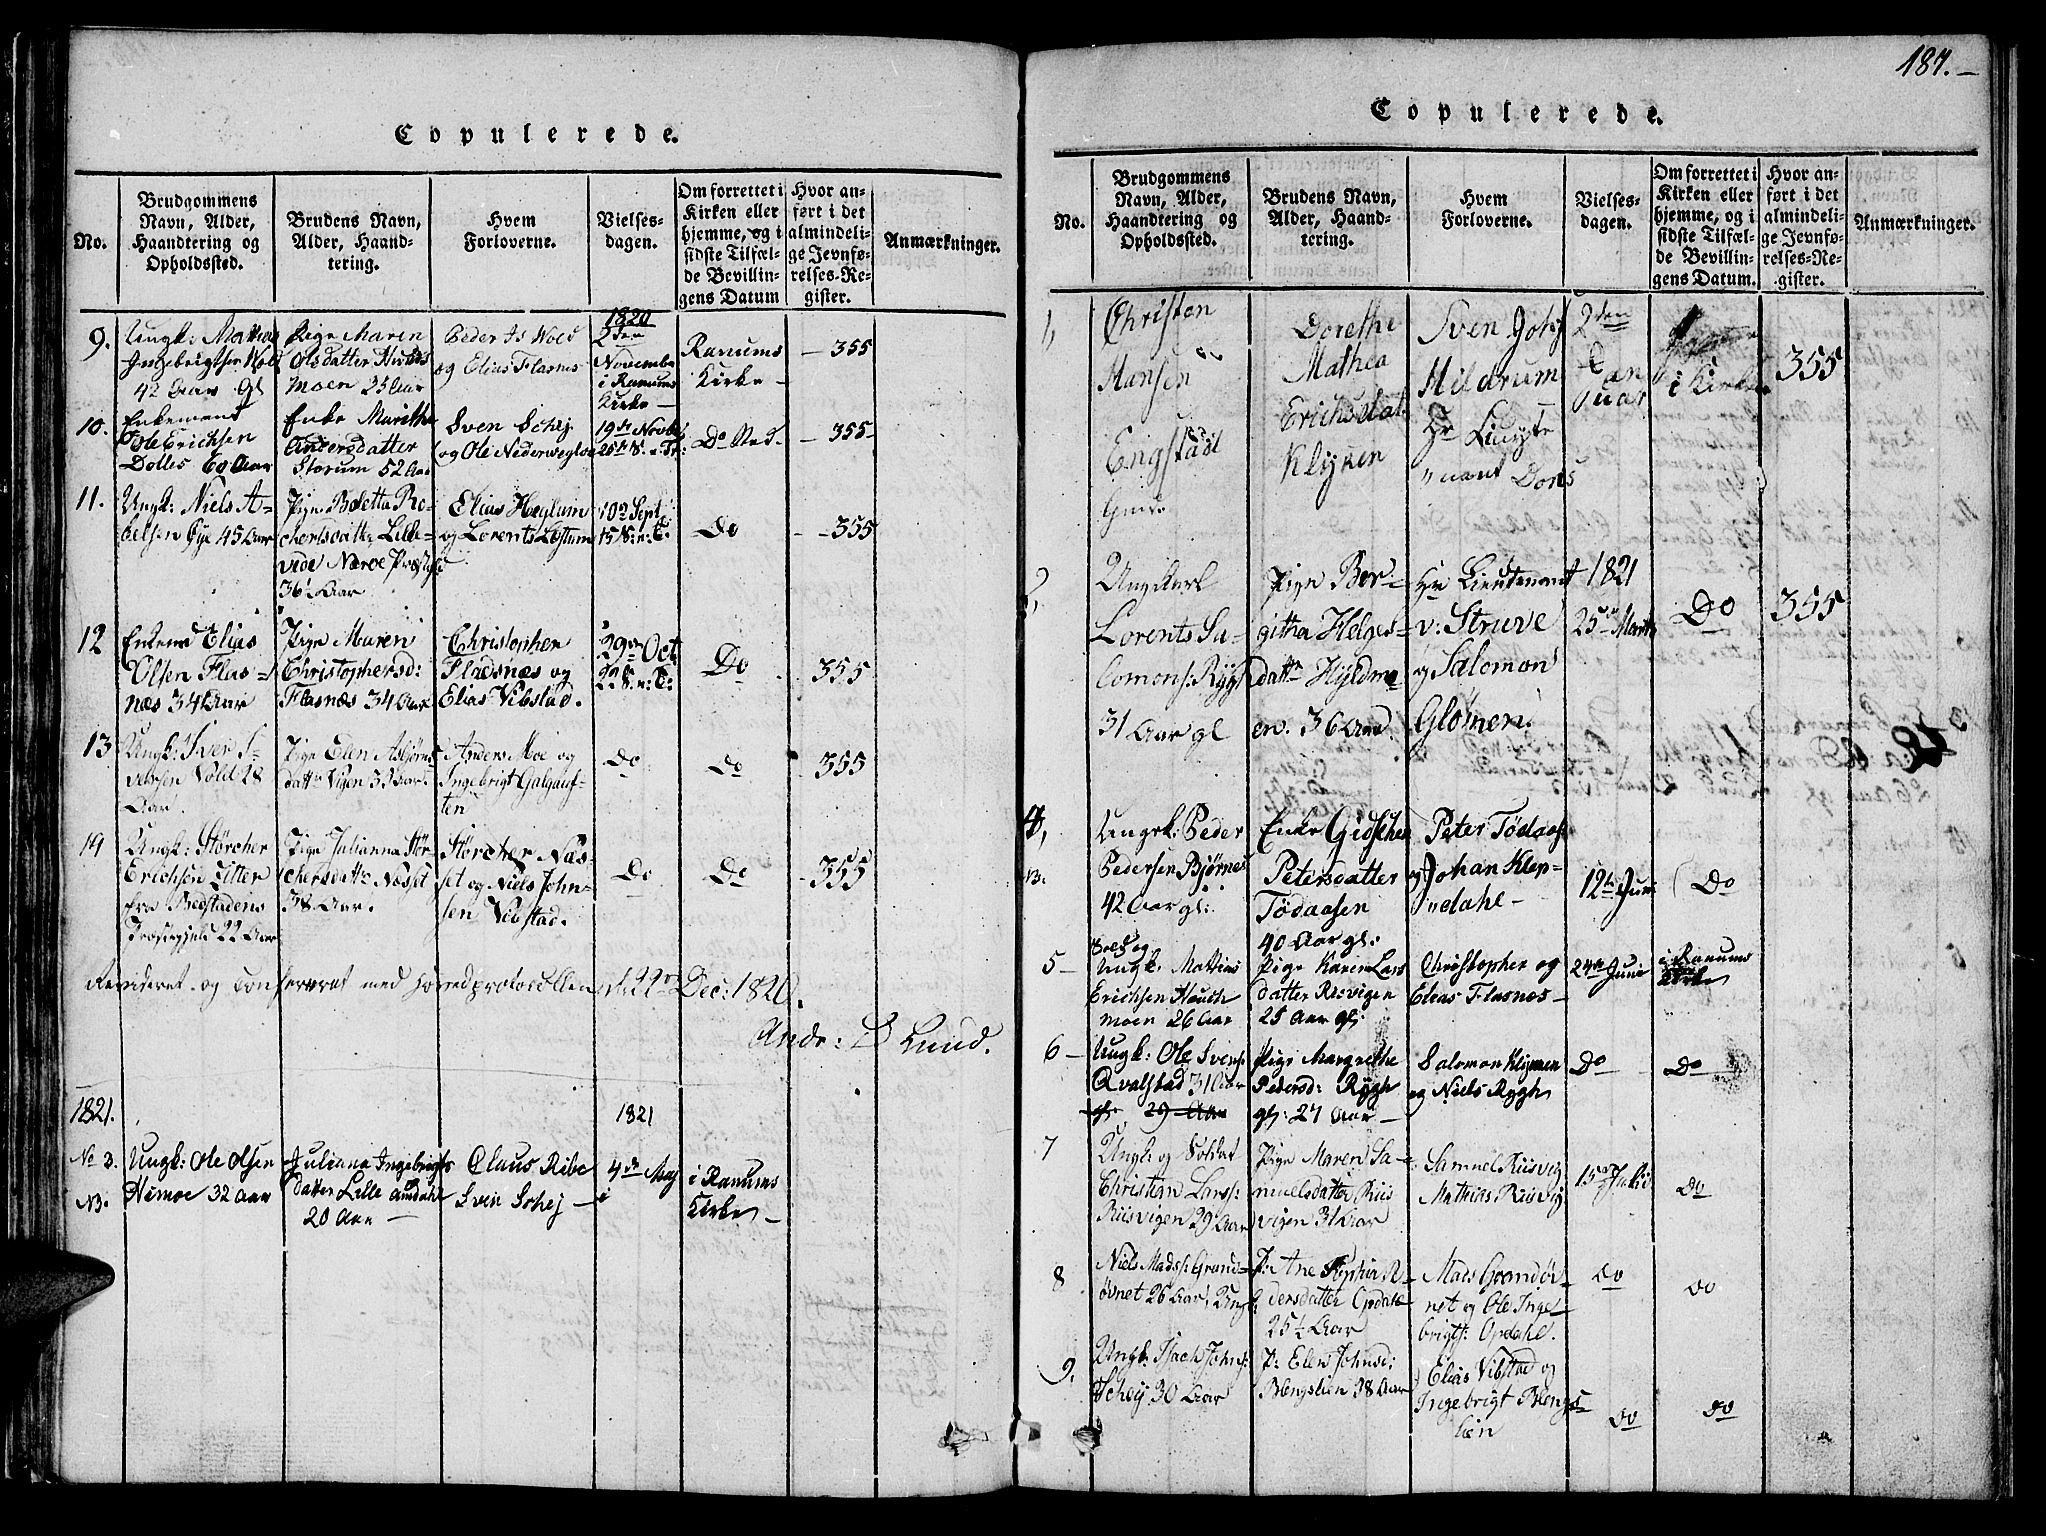 187.
Copulerede.
No.
Brudgommens
Navn, Alder,
Haandtering og
Opholdssted.
Brudens Navn,
Alder, Haand-
tering.
Hvem
Forloverne.
Vielses-
dagen.
Om forrettet i
Kirken eller
hjemme, og i
sidste Tilfæl-
de Bevillin-
gens Datum
Hvor an-
ført i det
almindeli-
ge Jevnfø-
relses-Re-
gister.
Anmærkninger.
9.
Ungk: Mathias
Ingebrigtsen
42 Aar gl
Pige Maren
Olsdatter
moen 25 Aar
Peder
og Elias Flasnes
1820
2den
November
i Ranums
Kirke
Ranums
Kirke
355
10.
Enkemand
Ole Erichsen
Dolles 60 Aar
Enke Marithe
Andersdatter
Storum 52 Aar
Sven Schej
og Ole
19de Novbr
25de S. n. Tr:
Do Sted.
355
11.
Ungk: Niels A-
belsen Øye 45 Aar
Pige Boletta
Lille-
vide Nærøe Præstgld
36½ Aar
Elias Heglum
og Lorents
10de Sept
15 S: n: T:
Do
355
12
Enkemd Elias
Olsen Flas-
næs 34 Aar
Pige Maren
Christophersd:
Flasnæs 34 Aar
Christopher
Flasnæs og
Elias Vibstad.
29de Oct
22 S. n: T:
Do
355
13
Ungk: Iver I-
versen Vold 28
Aar.
Pige Elen Asbjørns
datter Vigen 33 Aar.
Anders Moe og
Ingebrigt Galgauf-
ten
Do
Do
355
14
Ungk: Størcher
Erichsen
fra Bedstadens
Præstegjeld 22 Aar
Pige Julianna Stør-
chersdatter Næsset
38 Aar.
Størcher Næs-
set og Niels John-
sen Vibstad.
Do
Do
355
Revideret og conferreret med Hovedprotocollen d: 22de Dec: 1820.
Andr: B Lund.
1821.
1821
No 3.
NB.
Ungk: Ole Olsen
Himoe 32 Aar
Juliana Ingebrigts
datter Lille Amdahl
20 Aar
Claus Ribe
Sven Schej
4de Maj
i Ranums
Kirke
Copulerede.
No.
Brudgommens
Navn, Alder,
Haandtering og
Opholdssted.
Brudens Navn,
Alder, Haand-
tering.
Hvem
Forloverne.
Vielses-
dagen.
Om forrettet i
Kirken eller
hjemme, og i
sidste Tilfæl-
de Bevillin-
gens Datum.
Hvor an-
ført i det
almindeli-
ge Jevnfø-
relses-Re-
gister.
Anmærkninger.
1,
Christen
Hansen
Engstad
Dorethe
Mathea
Erichsdat
Klyken
Sven
Hildrum
Hr Lieute
nant Dons
2den
Januar
i Kirken
355
2,
Ungkarl
Lorents Sa-
lomons: Rygh
31 Aar gl
Pige Ber-
githa Helges-
datter Hyldmo
en. 36 Aar
Hr Lieutenant
v: Struve
og Salomon
Glømen.
1821
25de Marts
Do
355
4,
NB.
Ungk: Peder
Pedersen Bjørnes
42 Aar gl:
Enke Gidschen
Petersdatter
Tødaasen
40 Aar gl:
Peter Tødaas
og Johan Klep-
12te Juni
Do
5
Sold og
Ungk. Mattias
Erichsen
moen 26 Aar
Pige Karen Lars
datter Risvigen
25 Aar gl:
Christopher og
Elias Flasnes
24de Juni
i Ranums
Kirke
6
Ungk: Ole Svens:
Qvalstad 31 Aar
gl. 29 Aar
Pige Margrethe
Pedersd: Rygh
gl: 27 Aar
Salomon Klymen
og Niels Rygh
Do
Do
7
Ungk: og Soldat
Christian Lars:
Riisvigen 29 Aar
Pige Maren Sa-
muelsdatter Riis
vigen 31 Aar
Samuel Riisvig
Mathias Riisvig
15de Julii
Do
8
Niels Mads: Grand-
øvnet 26 Aar, Ungk:
P: Ane Sophia A-
dersdatter Opdahl
25½ Aar
Mads Grandøv
net og Ole Inge-
brigts: Opdahl.
Do
Do
9.
Ungk: Isach Johns:
Schey 30 Aar
P: Elen Johnsd:
Blengslien 38 Aar
Elias Vibstad og
Ingebrigt Blengs-
lien
Do
Do